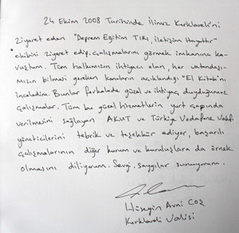 24 Ekim 2008 Tarihinde İlimiz Kırklareli'ni
ziyaret eden "Deprem Eğitim TIRı, iletişim Hayattır"
ekibini ziyaret edip, çalışmalarını görmek imkanına ka-
vuştum. Tüm halkımızın ihtiyacı olan, her vatandaşı-
mızın bilmesi gereken konuların açıklandığı "El kitabı"nı
inceledim. Bunlar fevkalade güzel ve ihtiyaç duyduğumuz
çalışmalar. Tüm bu güzel hizmetlerin yurt çapında
verilmesini sağlayan AKUT ve Türkiye Vodafone Vakfı
yöneticilerini tebrik ve teşekkür ediyor, başarılı
çalışmalarının diğer kurum ve kuruluşlara da örnek
olmasını diliyorum. Sevgi, saygılar sunuyorum.
Hüseyin Avni COŞ
Kırklareli Valisi